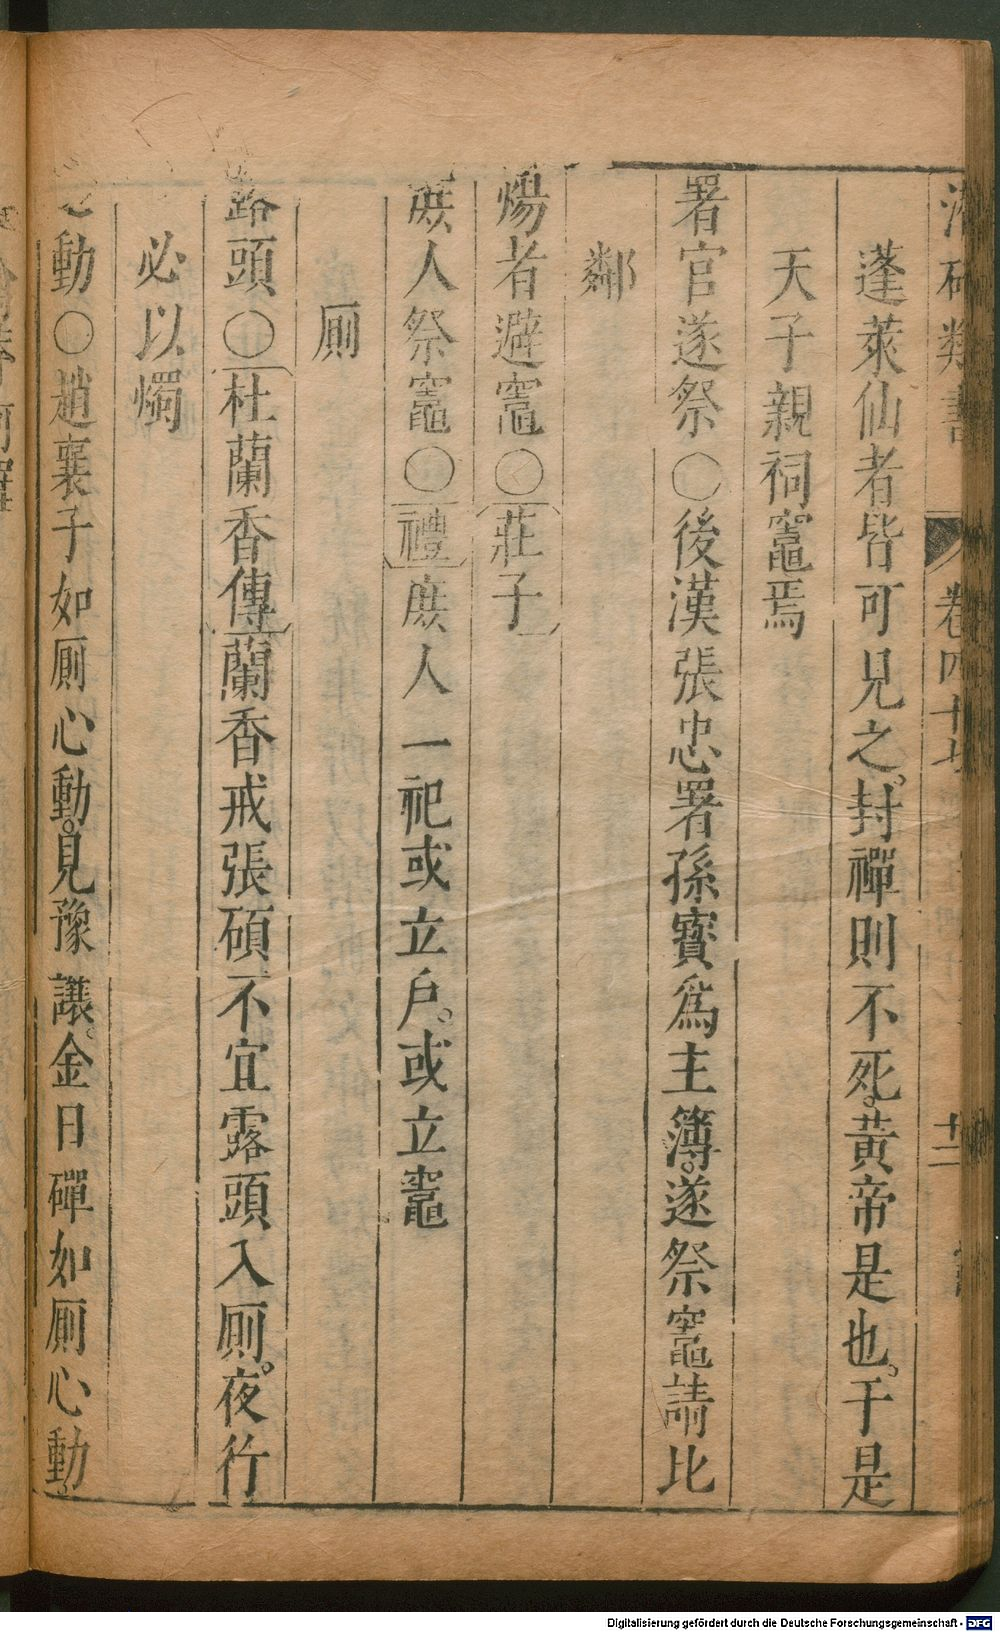 類書 卷四十 十二
蓬萊仙者皆可見之。封禪則不死。黃帝是也。于是
天子親祠竈焉
署官遂祭〇後漢張忠署孫寶爲主簿。遂祭竈請比
鄰
煬者避竈〇莊子
庶人祭竈〇禮庶人一祀或立戶。或立竈
厠
露頭〇杜蘭香傳蘭香戒張碩不宜露頭入厠。夜行
必以燭
心動〇趙襄子如厠心動。見豫讓。金日磾如厠心動
Digitalisierung gefördert durch die Deutsche Forschungsgemeinschaft - DFG